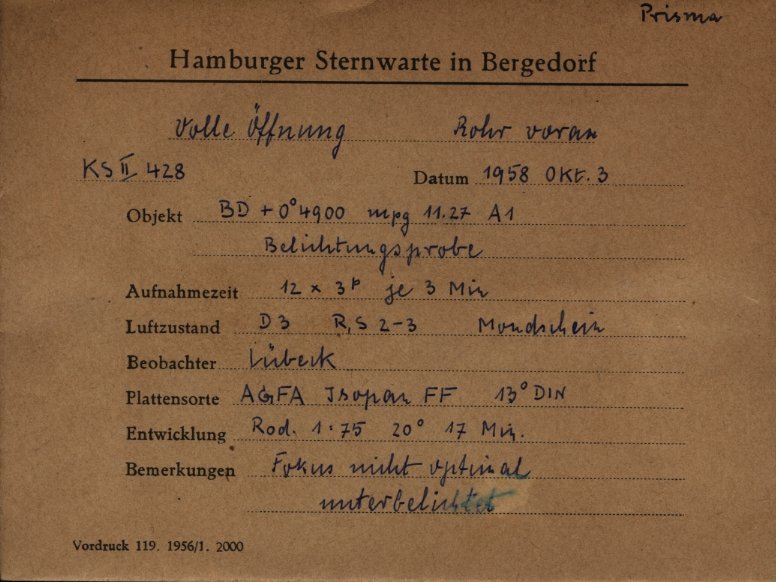 Prisma
Hamburger Sternwarte in Bergedorf
Volle Öffnung Rohr voran
KS II 428 Datum 1958 OKt. 3
Objekt BD + 0° 4900 mpg 11.27 A1
Belichtungsprobe
Aufnahmezeit 12 x 3ᵖ je 3 Min
Luftzustand D3 R,S 2-3 Mondschein
Beobachter Lübeck
Plattensorte AGFA Isopan FF 13° DIN
Entwicklung Rod. 1:75 20° 17 Min.
Bemerkungen Fokus nicht optimal
unterbelichtet
Vordruck 119. 1956/1. 2000